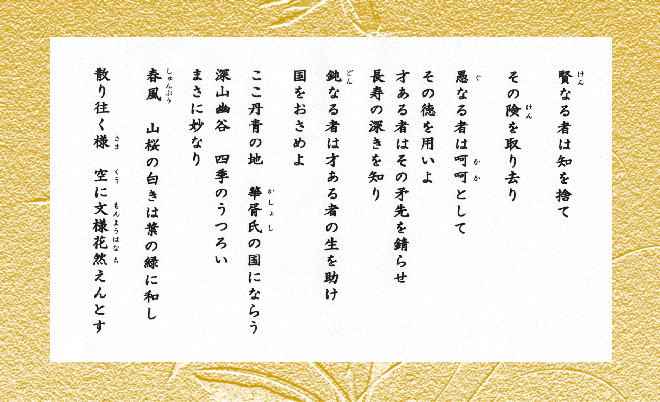 賢なる者は知を捨て
その険を取り去り
愚なる者は呵呵として
その徳を用いよ
才ある者はその矛先を錆らせ
長寿の深きを知り
鈍なる者は才ある者の生を助け
国をおさめよ
ここ丹青の地　華胥氏の国にならう
深山幽谷　四季のうつろい
まさに妙なり
春風　山桜の白きは葉の緑に和し
散り往く様　空に文様花然えんとす